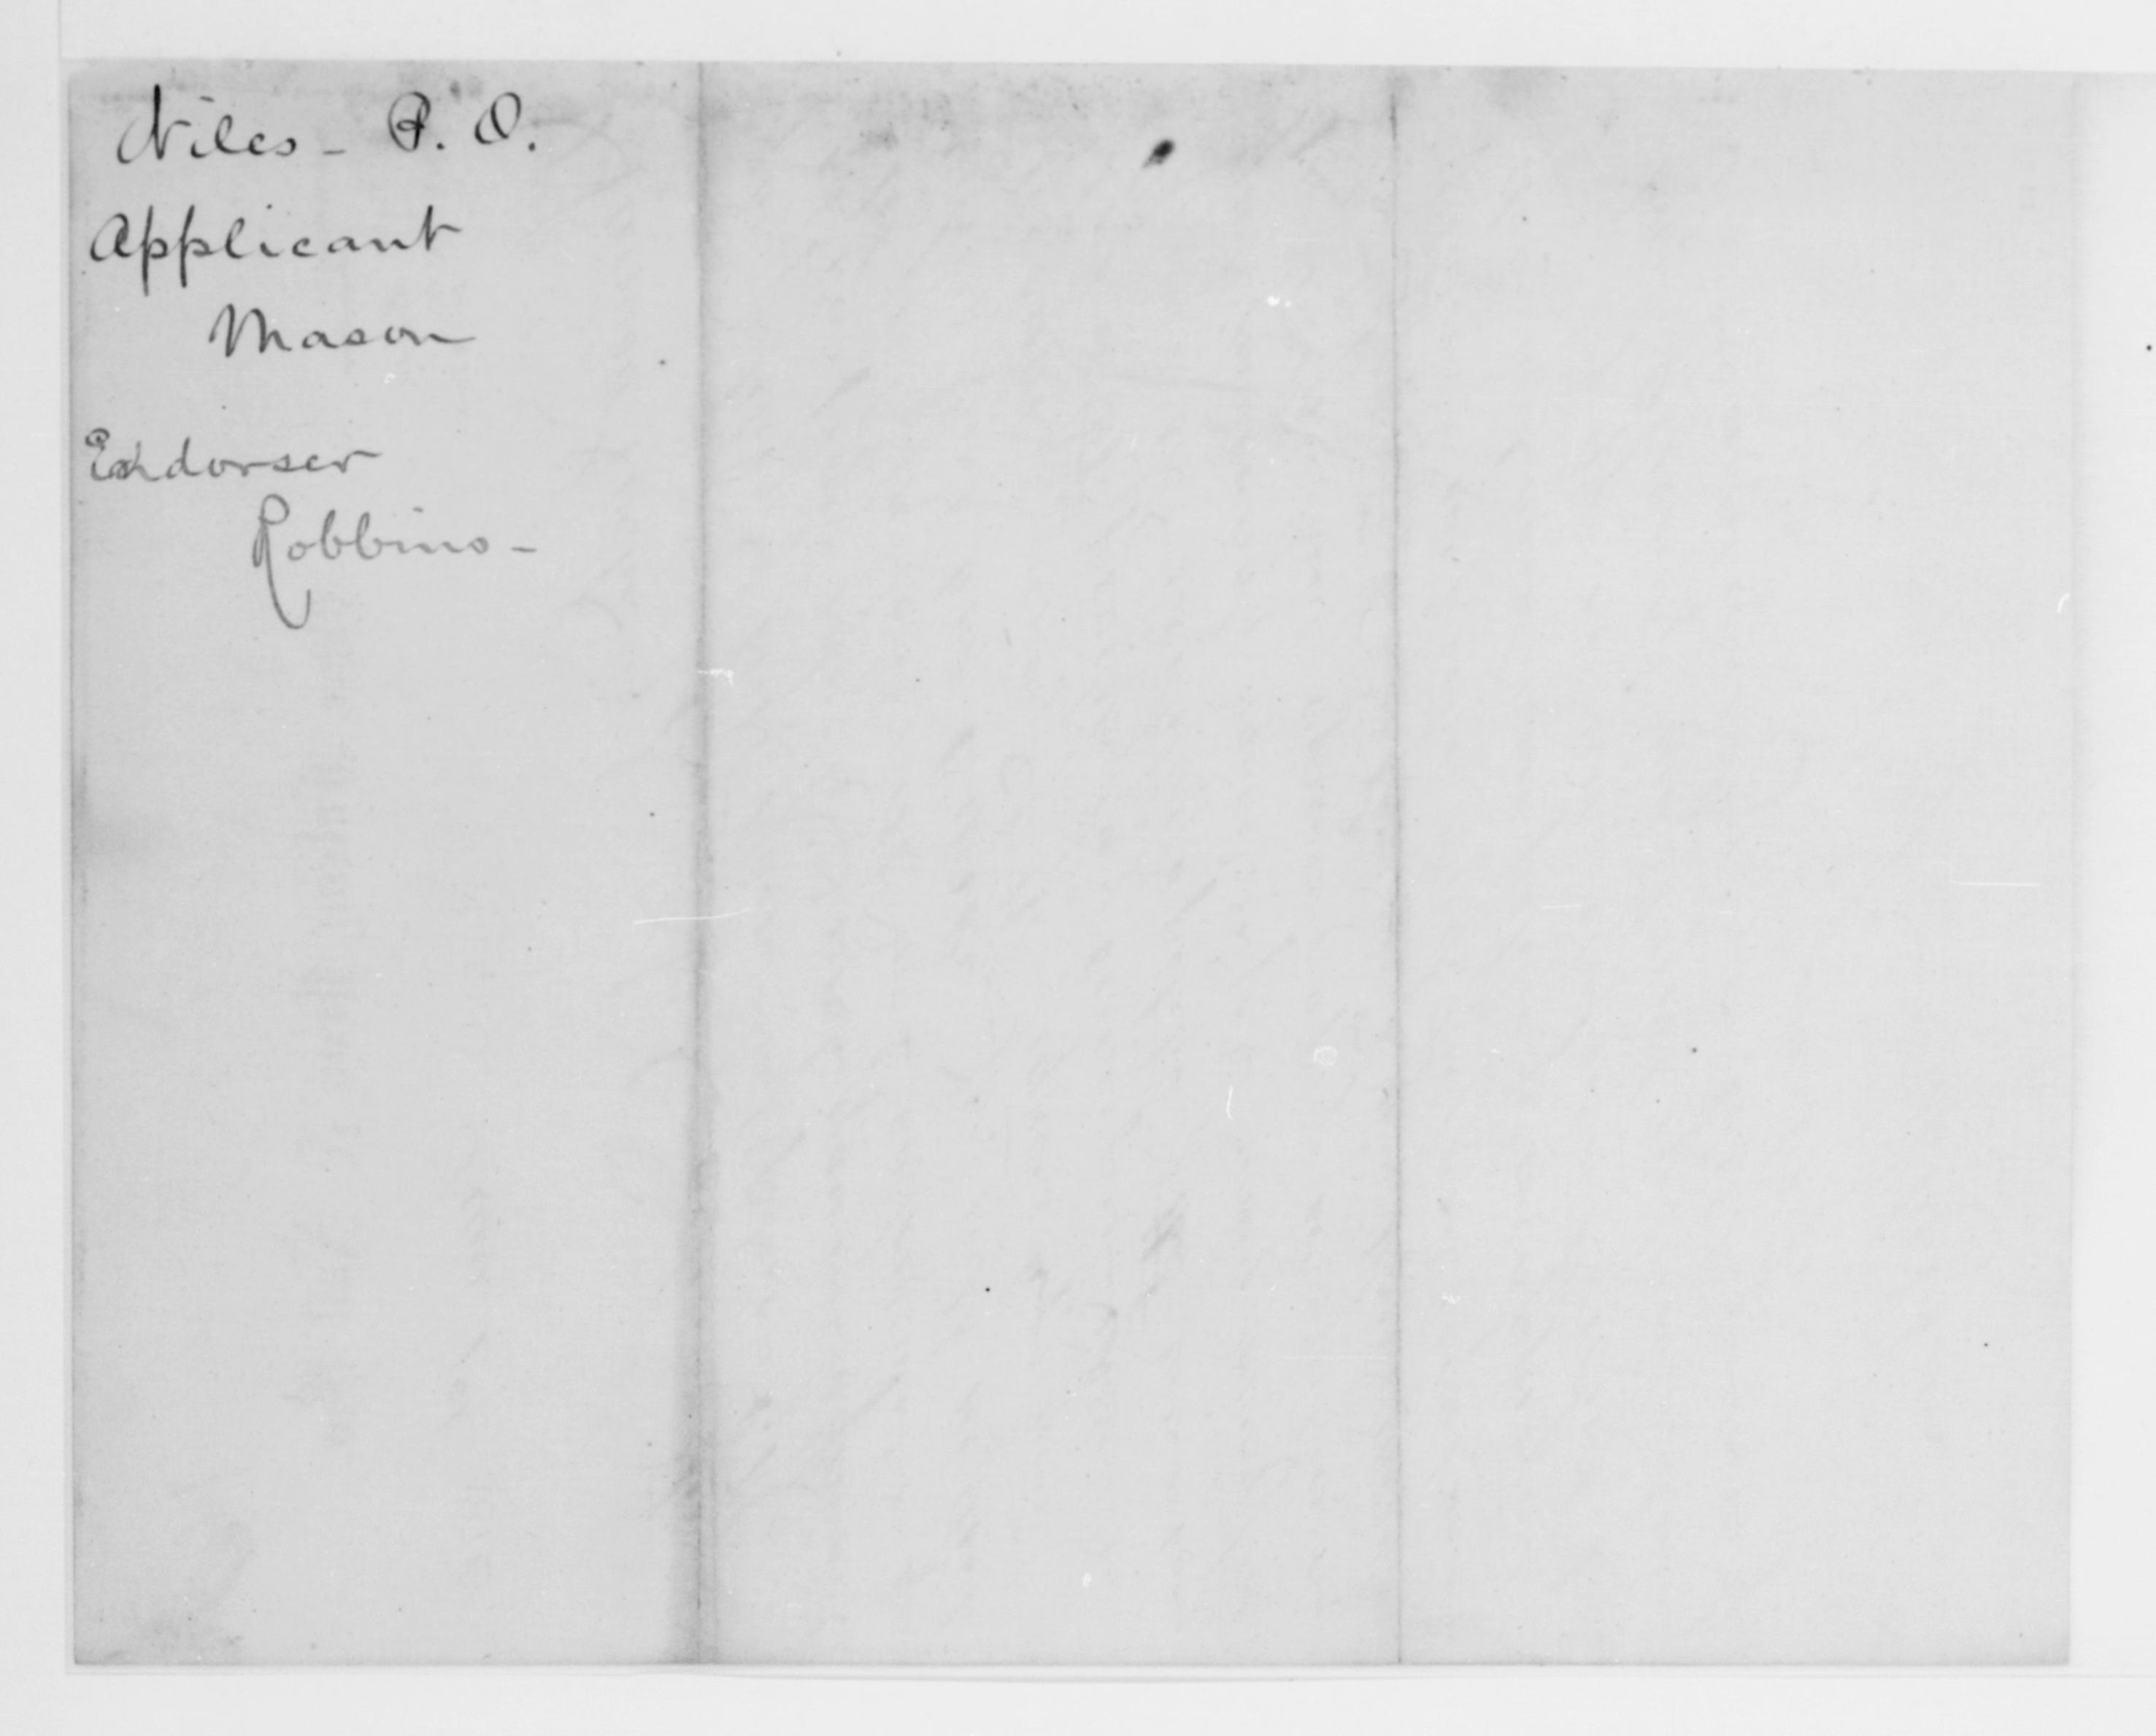 Niles - P. O.
Applicant
Mason
Endorser
Robbins -